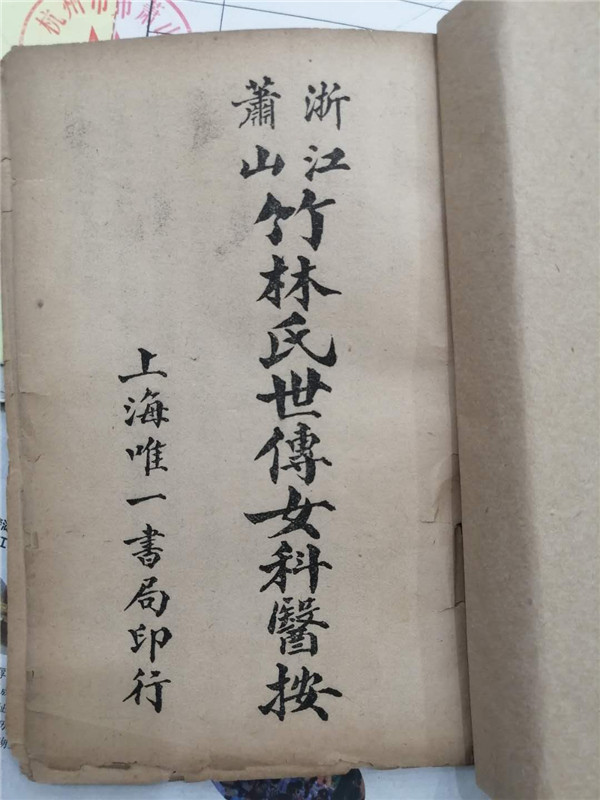 浙江
蕭山
竹林氏世傳女科醫按
上海唯一書局印行
杭州市
蕭山